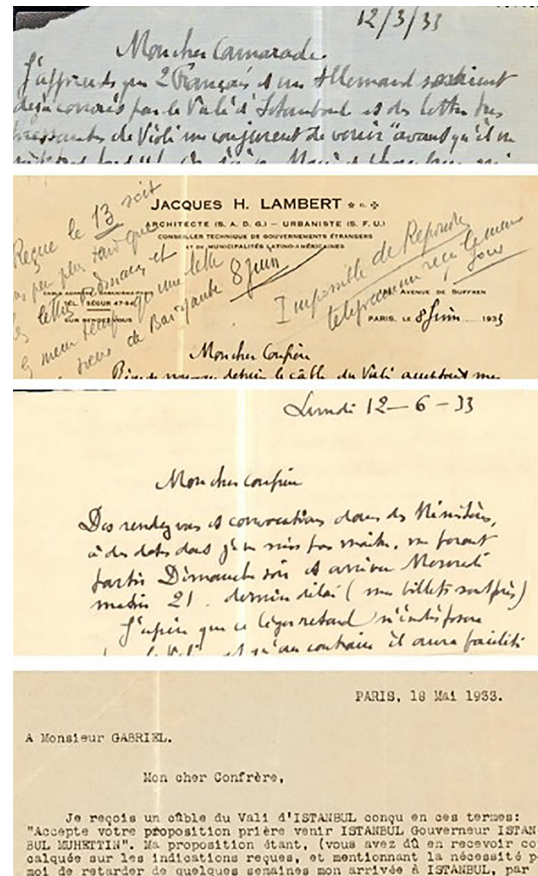 12/3/33
Mon cher Camarade
J'apprends que 2 Français et un Allemand seraient
déjà convoqués par le Vali d'Istanboul et des lettres très
pressantes de Violi me conjurent de venir avant qu'il ne
JACQUES H. LAMBERT
ARCHITECTE (S. A. D. G.) — URBANISTE (S. F. U.)
CONSEILLER TECHNIQUE DE GOUVERNEMENTS ÉTRANGERS
ET DE MUNICIPALITÉS LATINO-AMÉRICAINES
Reçue le 13 soit
un peu plus tard que
lettre et
même temps qu'une lettre
de 8 juin
Impossible de Répondre
reçu le même
jour
TEL. SÉGUR 47-94
SUR RENDEZ-VOUS
AVENUE DE SUFFREN
PARIS, LE 8 Juin 1933
Mon cher Confrère
le câble du Vali
Lundi 12 — 6 — 33
Mon cher Confrère
Des rendez vous et convocations dans des Ministères,
à des dates dont je ne suis pas maître, me feront
partir Dimanche soir et arriver Mercredi
matin 21. dernier délai (mes billets sont pris)
J'espère que ce léger retard n'indispose
le Vali et qu'au contraire il aura facilité
PARIS, 18 Mai 1933.
A Monsieur GABRIEL.
Mon cher Confrère,
Je reçois un câble du Vali d'ISTANBUL conçu en ces termes:
"Accepte votre proposition prière venir ISTANBUL Gouverneur ISTAN
BUL MUHETTIN". Ma proposition étant, (vous avez dû en recevoir co
calquée sur les indications reçues, et mentionnant la nécessité p
moi de retarder de quelques semaines mon arrivée à ISTANBUL, par